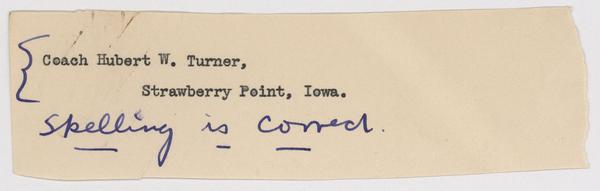 Coach Hubert W. Turner,
Strawberry Point, Iowa.
Spelling is correct.